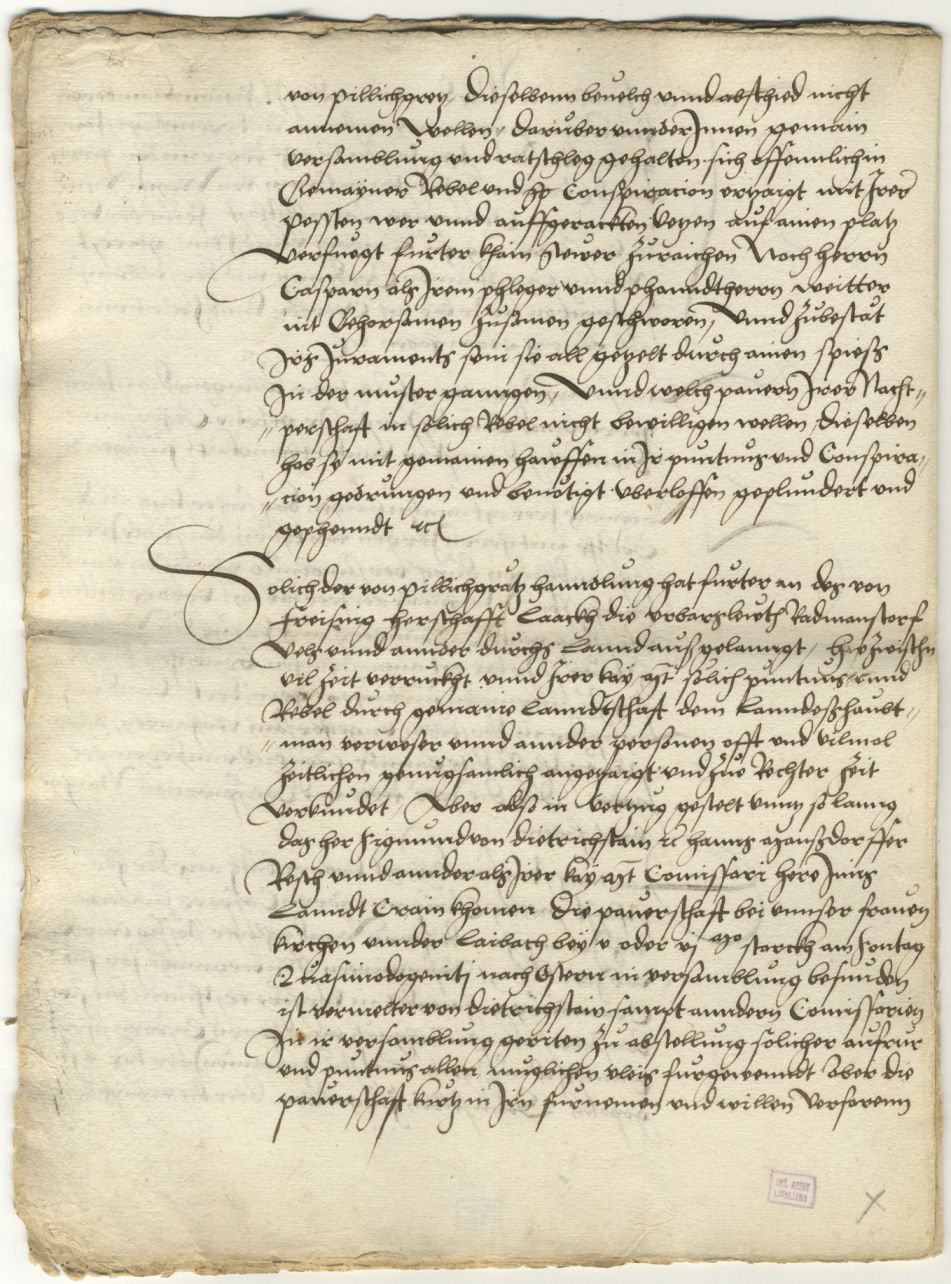 von pillichgretz, dieselbenn beuelch vnnd abschied nicht
annemen Wellen, daruber vnnder Jnnen gemain
versamblung vnd ratschleg gehalten, sich offennlich in
Gemayner Rebel vnd Conspiracion ertzaigt mit Jrer
pessten wer vnnd auffgerackten vetzen auf ainen platz
verfuegt furter khain stewer zuraichen Noch herrn
Casparn als Jrem phleger vnnd phanndtherrn weitter
mit Gehorsamen zusamen geschworen, vnnd zubestat
Jrs Juraments sein sie all getzelt durch ainen spiess
Jn der muster ganngen, Vnnd welch pauern Jrer Nach-
perschaft in solich Rebel nicht bewilligen wellen dieselben
hab sy mit gemainen hawffen in Jr puntnus vnd Conspira-
cion gedrungen vnd benotigt vberloffen geplundert vnd
gephenndt etc
Solich der von pillichgratz hanndlung hat furter an des von
Freising herschafft Laackh die vrbarsleuth Radmanstorf
Vels vnnd annder durchs Lannd aus gelanngt, hie zwischn
vil zeit verruckht vnnd Jrer kay Mt solich puntnus vnnd
Rebel durch gemaine Lanndtschaft dem Lanndeshaubt-
man verweser vnnd annder personen offt vnd vilmal
zeitlichen genugsamlich angetzaigt vnd zue Rechter zeit
verkundet, Aber also in vertzug gestelt vnntz so lanng
das her Sigmund von dietrichstain etc hanns Mansdorffer
Resch vnnd annder als Jrer kay Mt Comissari here Jnns
Lanndt Crain khomen die pauerschaft bei vnnser frauen
kirchen vnnder Laibach bey v oder vj Mo starckh am Sontag
Quasimodogenitj nach Ostern in versamblung befunden
ist vermelter von dietrichstain sampt anndern Comissarien
Jn ir versamblung geriten zu abstellung solicher aufrur
vnd puntnus allen muglichen vleis furgewenndt Aber die
pauerschaft kurtz in Jrn furnemen vnd willen verfarenn
DRŽ. ARHIV
LJUBLJANA